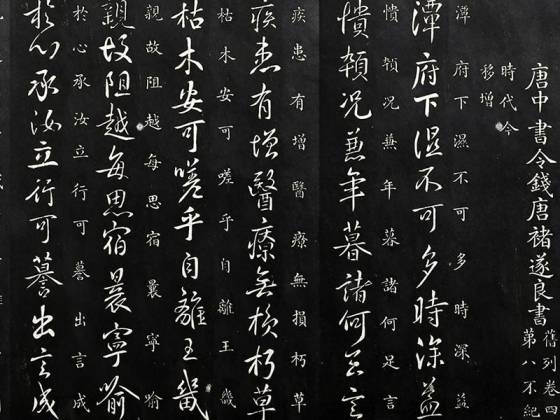 唐中書令錢唐褚遂良書
舊列卷四
第八不紀
時代今
移增
潭府下濕不可多時深益
潭府下濕不可多時深益
憒頓況兼年暮諸何足言
憒頓況兼年暮諸何足言
疾患有增醫療無損朽草
疾患有增醫療無損朽草
枯木安可嗟乎自離王畿
枯木安可嗟乎自離王畿
親故阻越每思宿晨寧喻
親故阻越每思宿晨寧喻
於心承汝立行可譽出言成
於心承汝立行可譽出言成